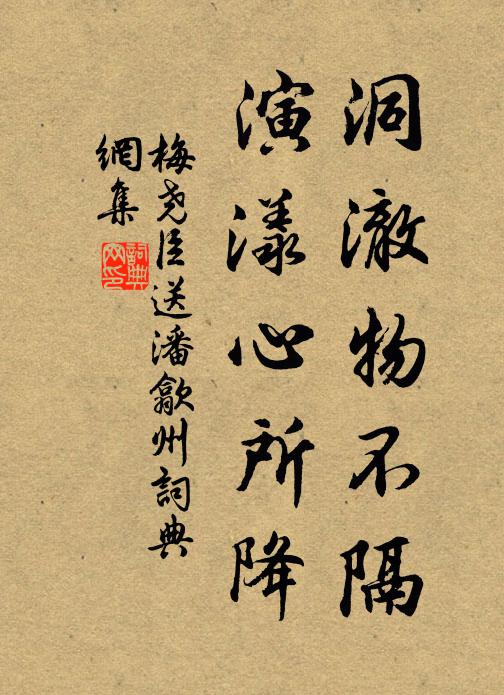 洞澈物不隔
演漾心所降
梅尧臣送潘歙州詞典
網集
詞典网印